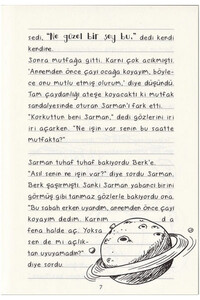 sedi, "Ne güzel bir şey bu," dedi kendi
kendine.
Sonra mutfağa gitti. Karnı çok acıkmıştı.
'Annemden önce çayı ocağa koyayım, böyle-
ce onu mutlu etmiş olurum,' diye düşündü.
Tam çaydanlığı ateşe koyacaktı ki mutfak
sandalyesinde oturan Sarman'ı fark etti.
"Korkuttun beni Sarman," dedi gözlerini iri
iri açarken. "Ne işin var senin bu saatte
mutfakta?"
Sarman tuhaf tuhaf bakıyordu Berk'e.
"Asıl senin ne işin var?" diye sordu Sarman.
Berk şaşırmıştı. Sanki Sarman yabancı birini
görmüş gibi tanımaz gözlerle bakıyordu ona.
"Bu sabah erken uyandım, annemden önce çayı
koyayım dedim. Karnım da
fena halde aç. Yoksa
sen de mi açlık-
tan uyuyamadın?"
diye sordu
7